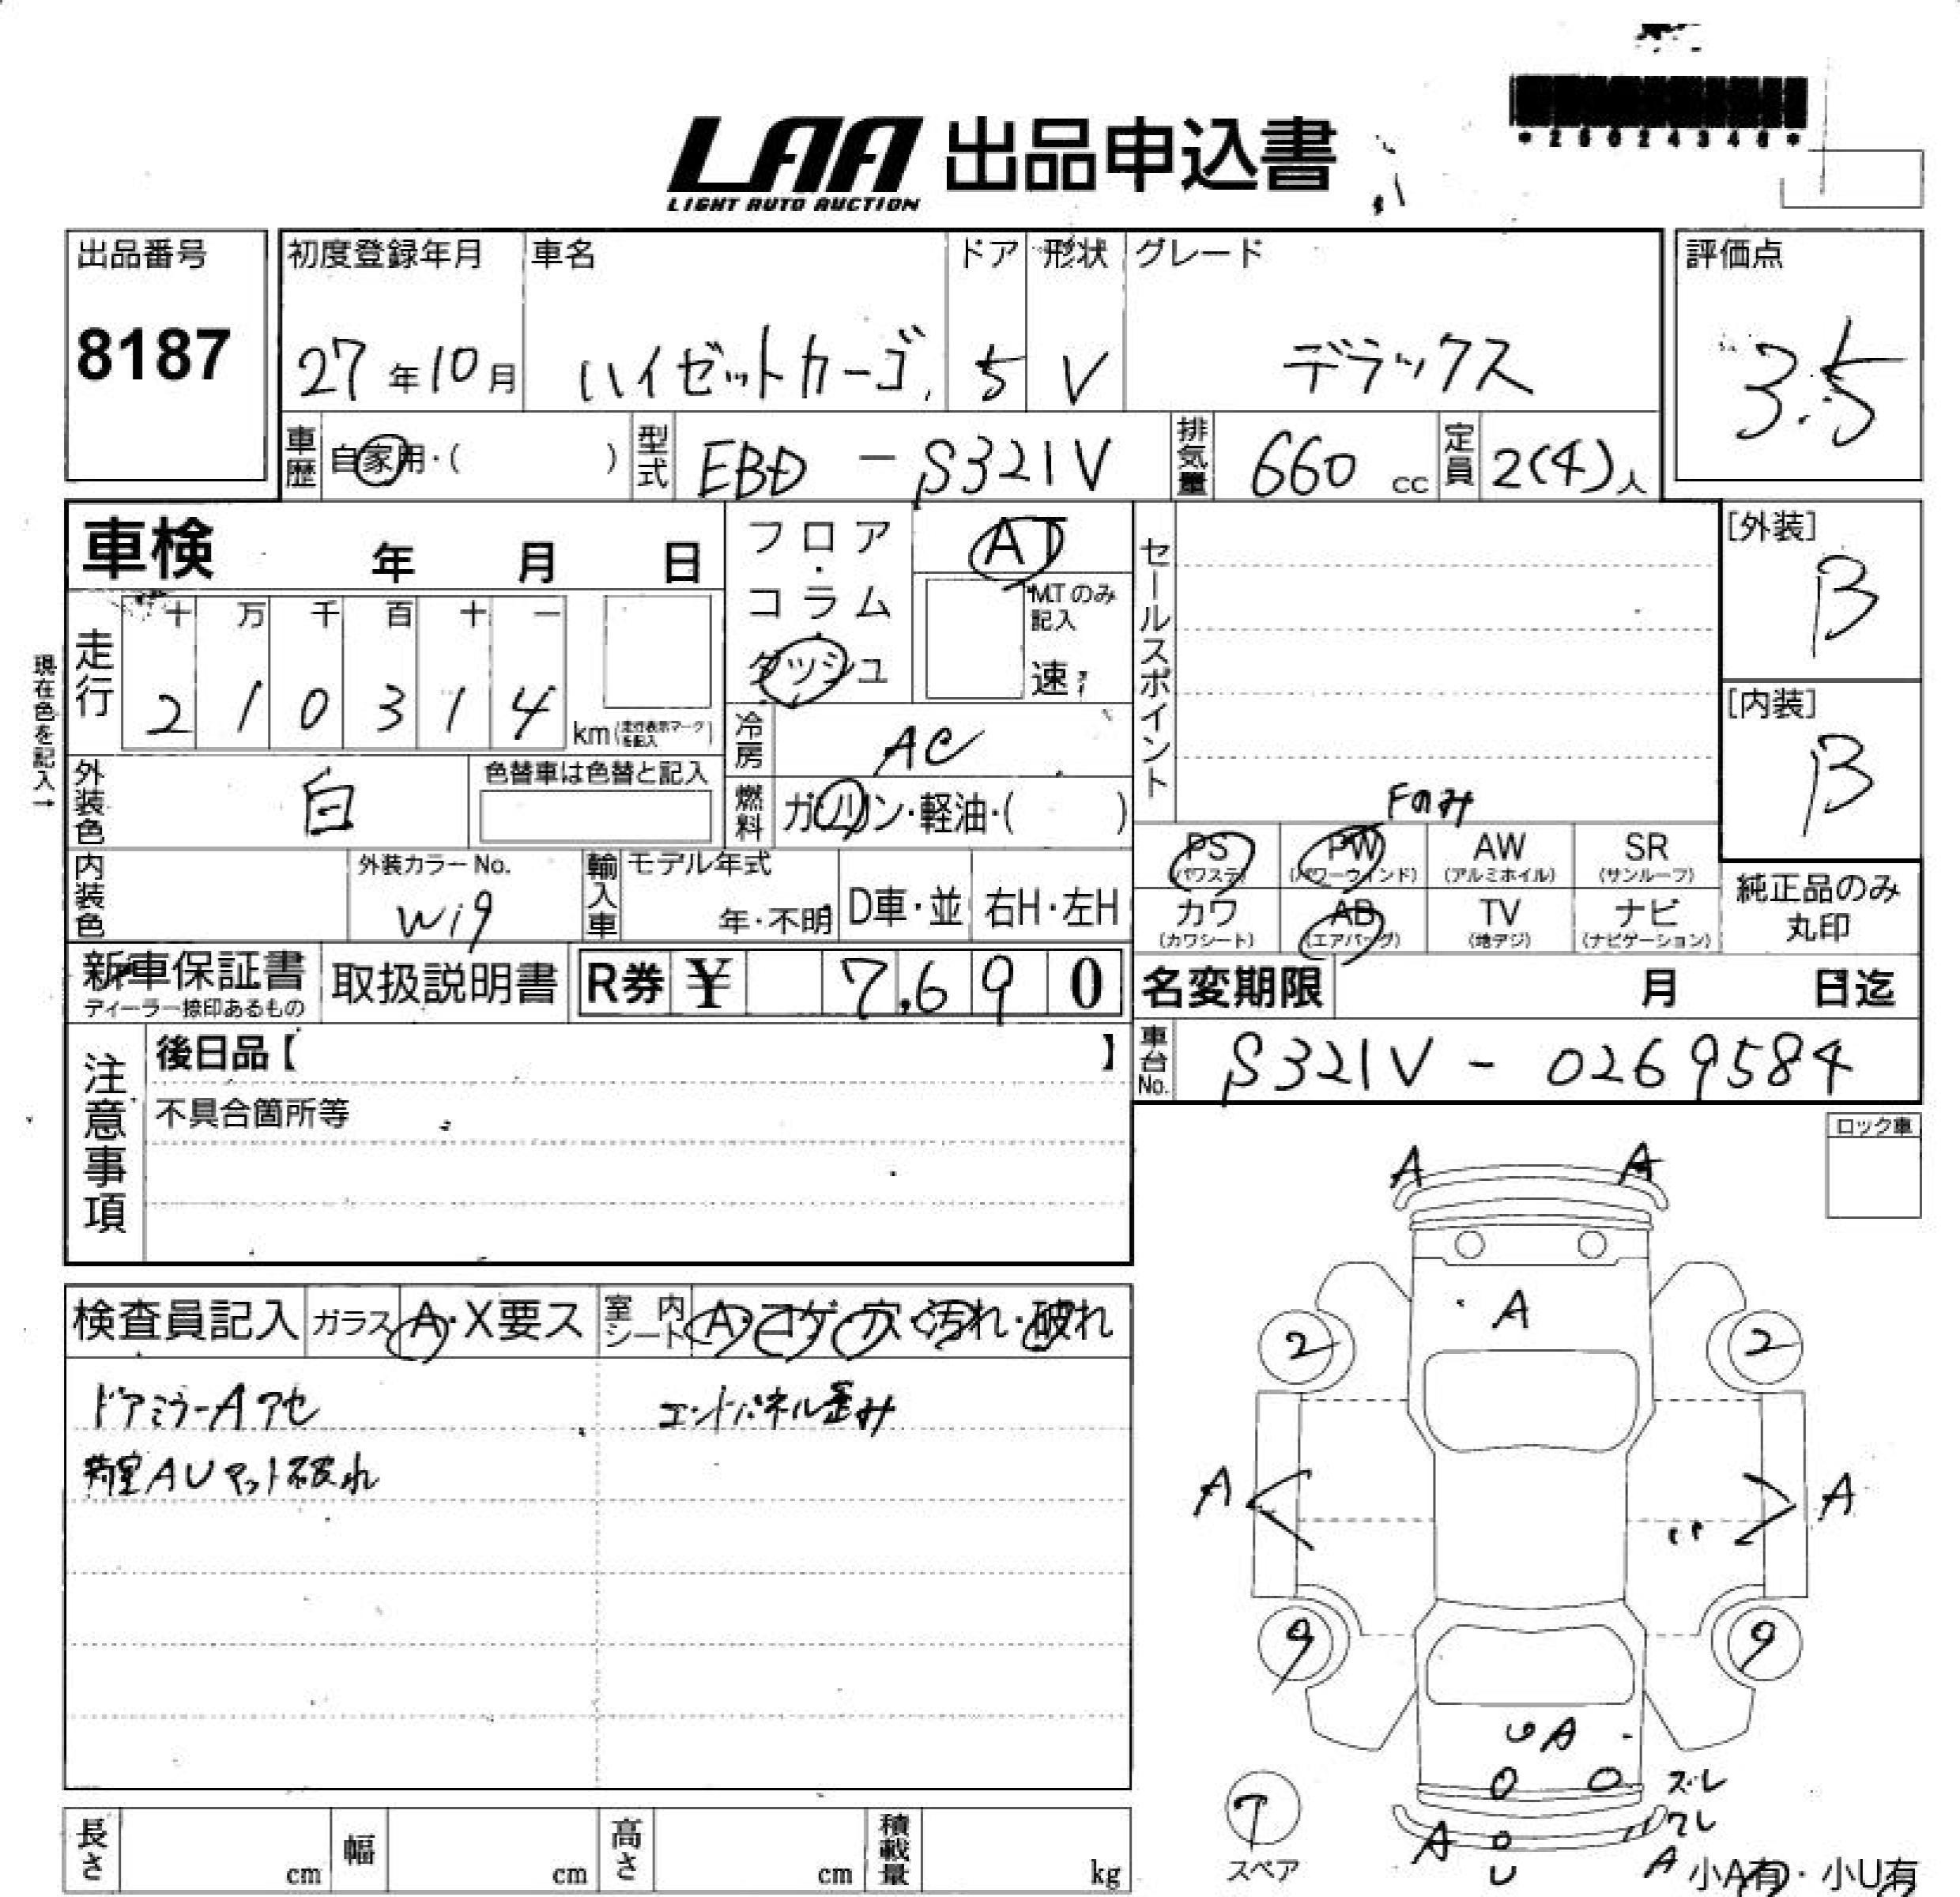 *25024348*
LAA 出品申込書
LIGHT AUTO AUCTION
出品番号 初度登録年月 車名 ドア 形状 グレード 評価点
8187 27年10月 ハイゼットカーゴ 5 V デラックス 3.5
車歴 自家用・( ) 型式 EBD-S321V 排気量 660 cc 定員 2(4)人
車検 年 月 日 フロア・コラム・ダッシュ AT セールスポイント [外装]
B
MTのみ記入
速
走行 十 万 千 百 十 一
2 1 0 3 1 4 km(走行表示マークを記入)
現在色を記入→
[内装]
B
冷房 AC
外装色 白 色替車は色替と記入 燃料 ガソリン・軽油・( )
Fのみ
PS (パワステ) PW (パワーウインド) AW (アルミホイル) SR (サンルーフ)
内装色 外装カラーNo. W19 輸入車 モデル年式 年・不明 D車・並 右H・左H
カワ (カワシート) AB (エアバッグ) TV (地デジ) ナビ (ナビゲーション)
純正品のみ
丸印
新車保証書 取扱説明書 R券 ¥ 7,690 名変期限 月 日迄
ディーラー捺印あるもの
注意事項 後日品【 】 車台No. S321V-0269584
不具合箇所等
ロック車
A A
検査員記入 ガラス A・X要ス 室内シート A・コゲ・穴・汚れ・破れ
A
2 2
ドアミラーA アセ エンドパネル歪み
荷室AU マット破れ
A A
9 9
UA
ズレ
ワレ
A U A
T
スペア
小A有・小U有
長さ cm 幅 cm 高さ cm 積載量 kg